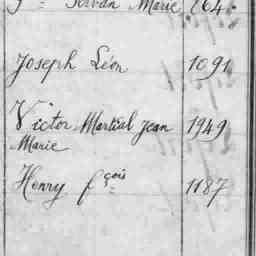 Servan Marie 264
Joseph Léon 1091
Victor Martial Jean 1949
Marie
Henry fçois 1187